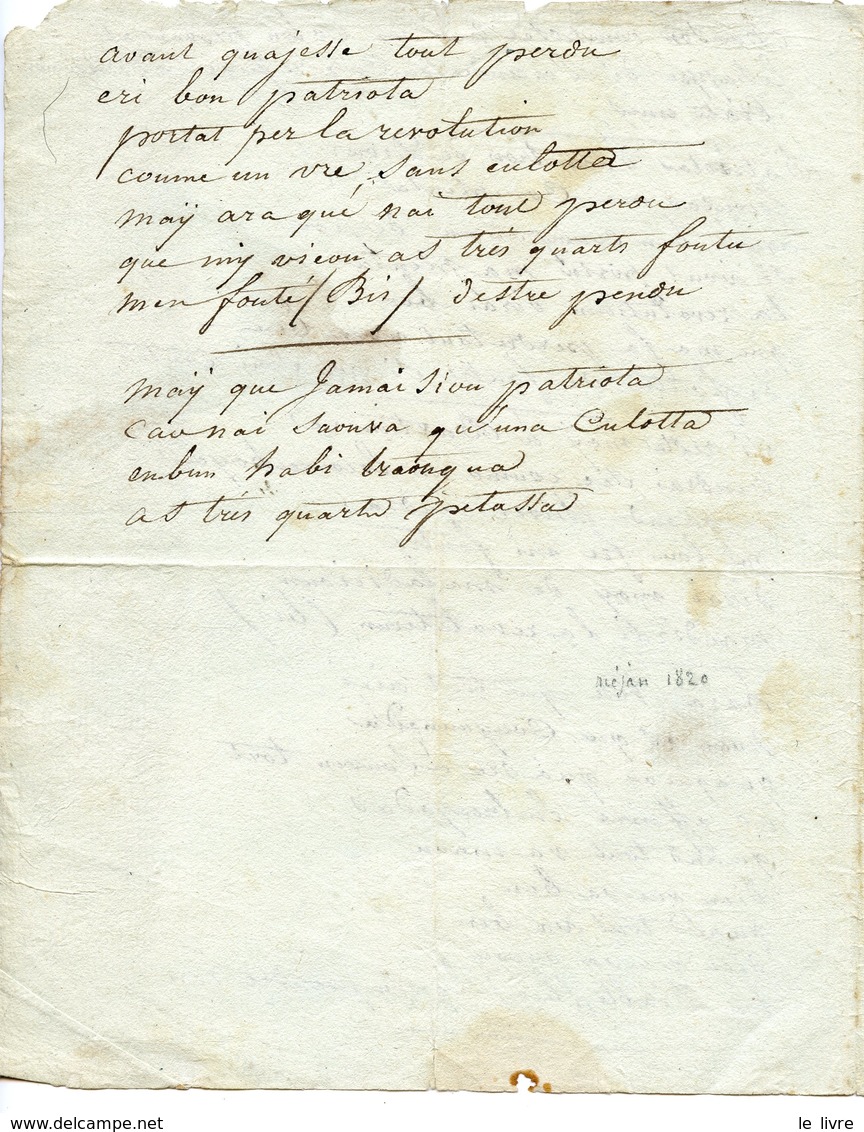 avant quajesse tout perdu
eri bon patriota
portat per la revolution
coume un vre sans culotta
maÿ ara qué nai tout perdu
que my vicou as trés quarts foutu
men fouté / Bis / destre pendu
maÿ que Jamai sion patriota
car nai saouva qu'una Culotta
enbun habi traouqua
as trés quarts petassa
méjan 1820
le livre